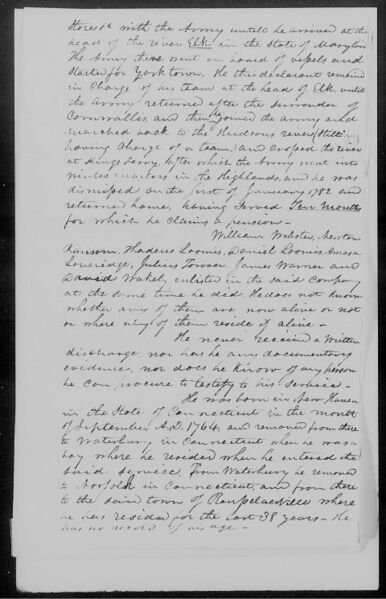 Stores &c with the Army untill he arrived at the
head of the river Elk in the State of Maryland
The Army there went on board of vessels and
started for York town. He this declarant remained
in charge of his team at the head of Elk untill
the Army returned after the surrender of
Cornwallis and then he joined the army and
marched back to the Hudsons river (still
having charge of a team) and crossed the river
at Kings ferry after which the Army went into
winter quarters in the Highlands, and he was
dismissed on the first of January 1782 and
returned home, having served Ten Months
for which he claims a pension—
William Webster, Newton
Ransom, Thadeus Loomis, Daniel Loomis, Amasa
Loveridge, Julius Towson, James Warner and
David Wakely enlisted in the said Company
at the same time he did. He does not know
whether any of them are now alive or not
or where any of them reside if alive—
He never received a written
discharge, nor has he any documentary
evidence, nor does he know of any person
he can procure to testify to his service—
He was born in New Haven
in the State of Connecticut in the month
of September A.D. 1764, and removed from there
to Waterbury in Connecticut when he was a
boy where he resided when he entered the
said service, from Waterbury he removed
to Norfolk in Connecticut, and from there
to the said town of Rensselaerville where
he has resided for the last 38 years— He
has no record of his age—